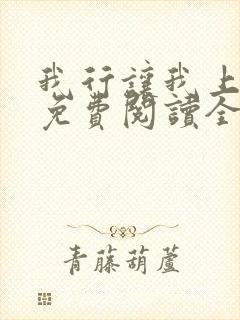 我行讓我上
免費閱讀全
青藤葫蘆